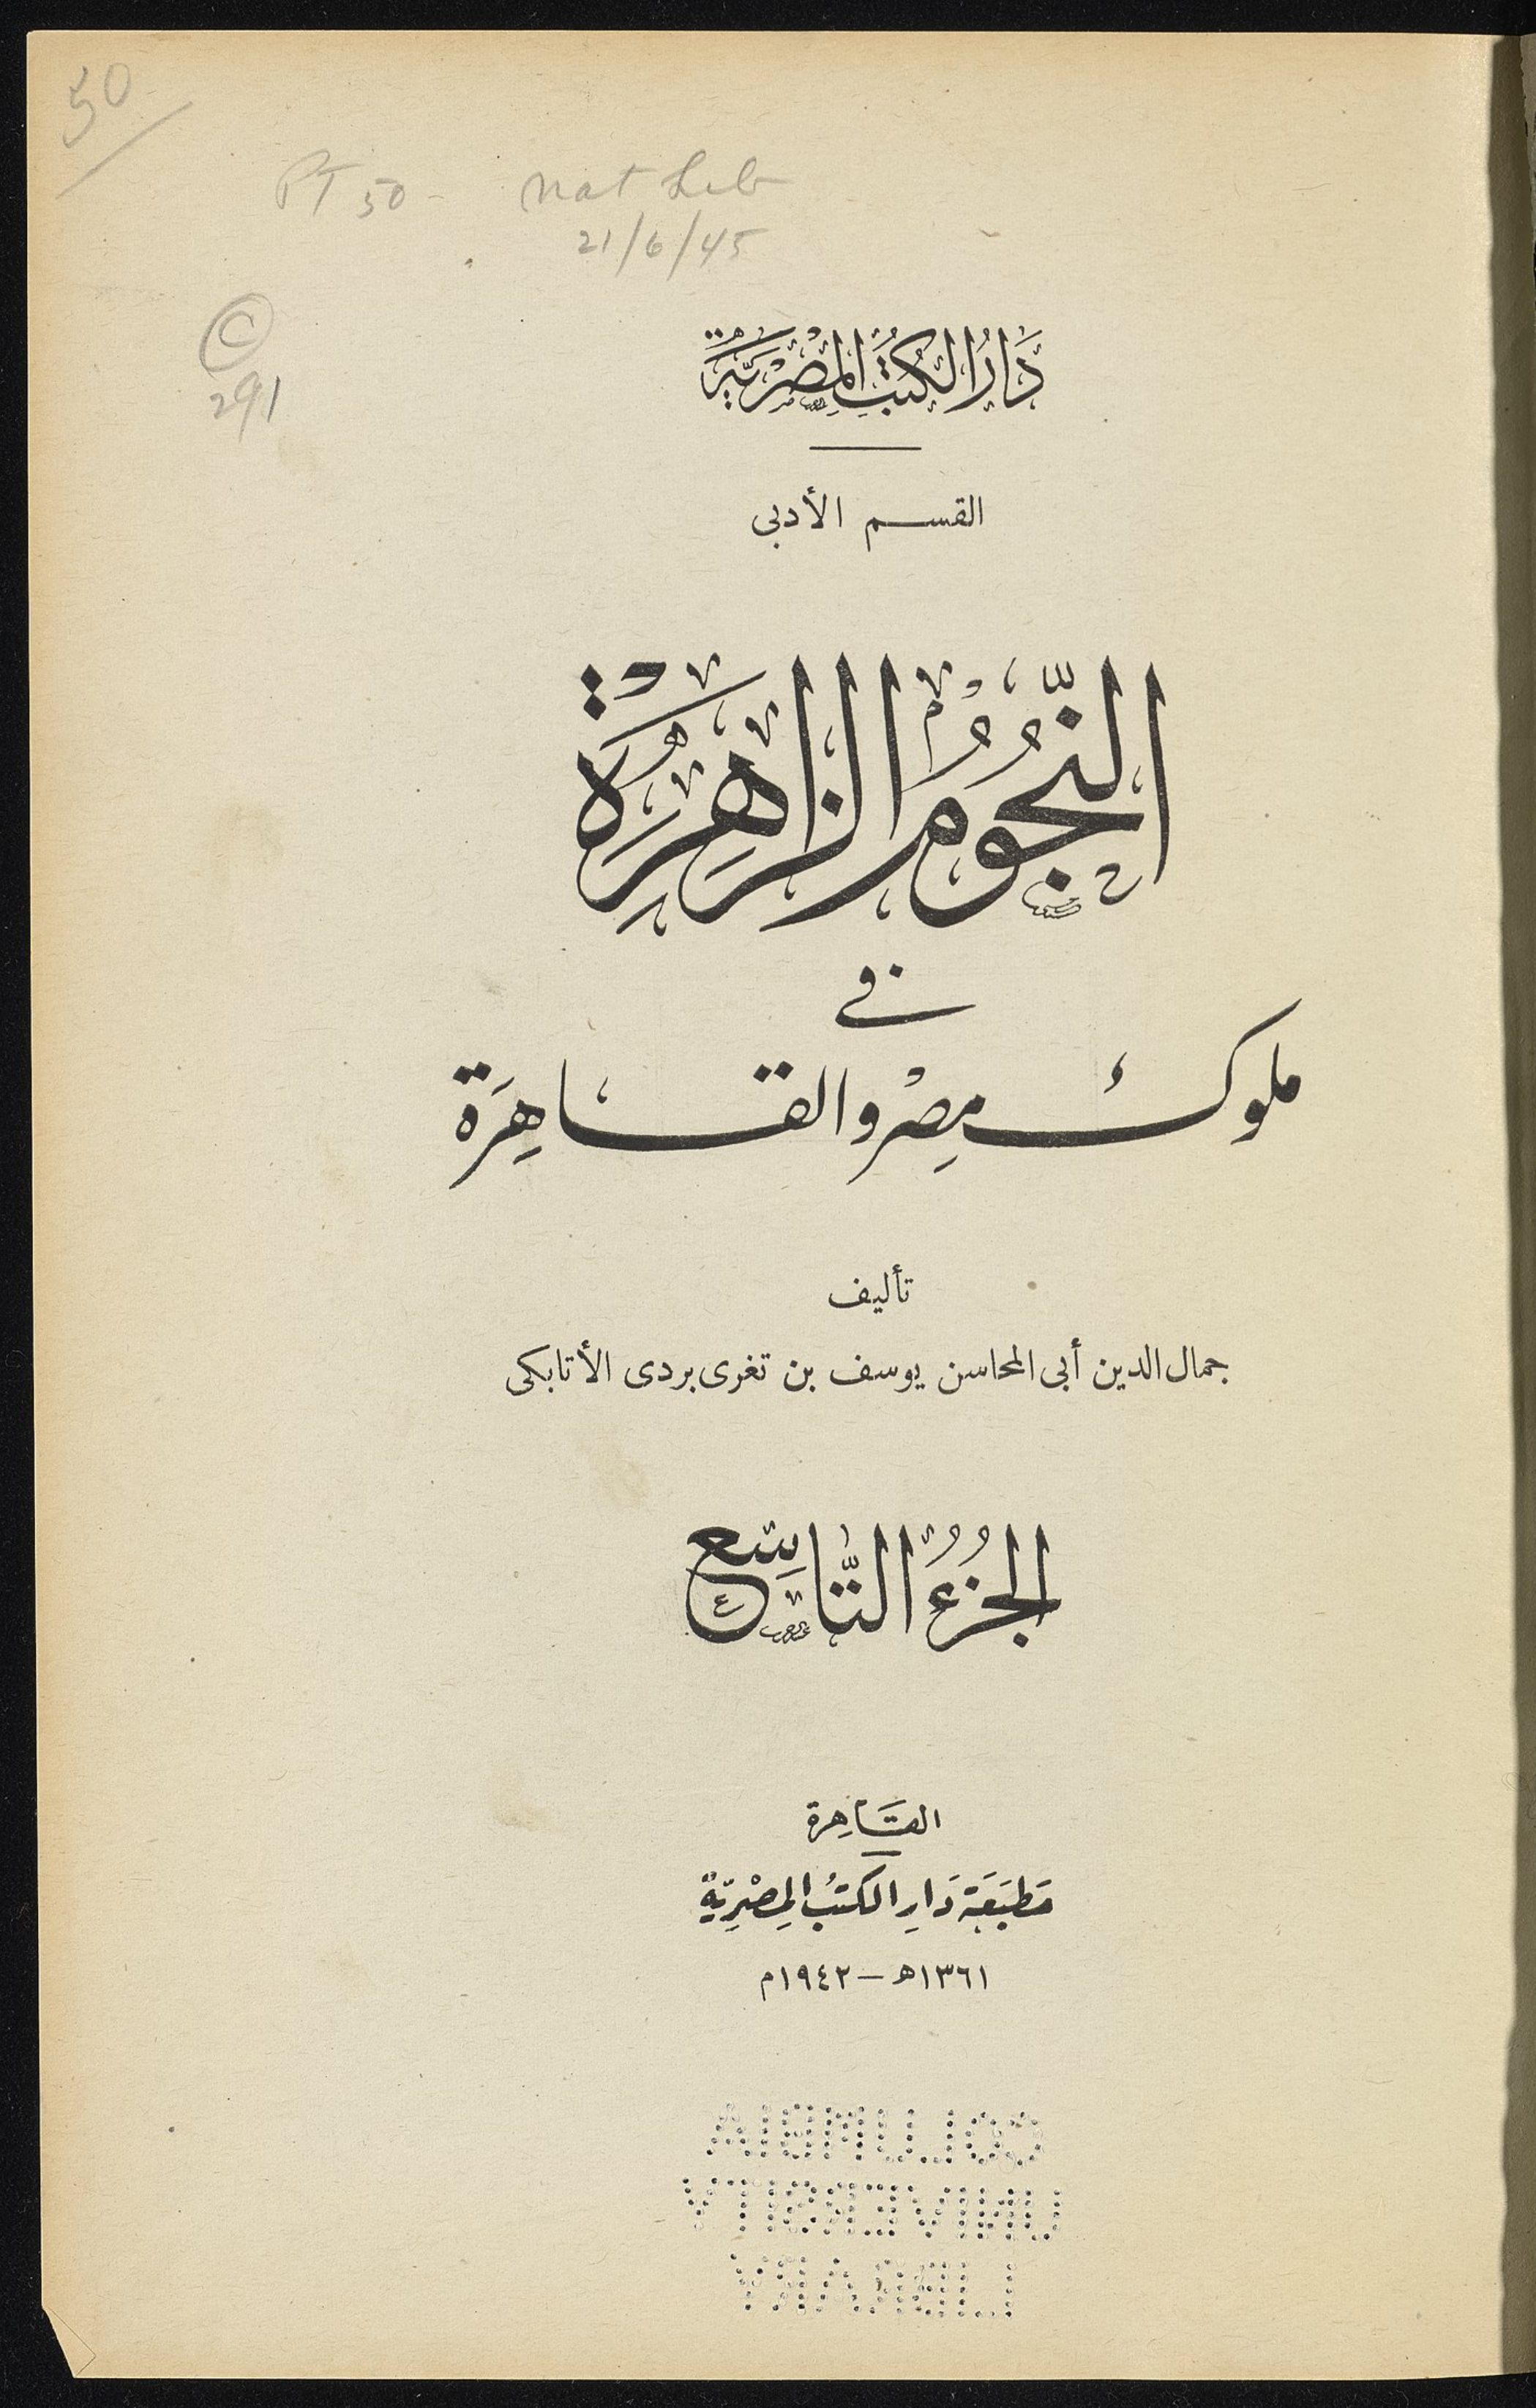 50
PT 50 - Nat Lib
21/6/45
©
291
دَارُ الكُتُبِ المِصْرِيَّةِ
القسم الأدبى
النُّجُومُ الزَّاهِرَةُ
فى
ملوك مِصْر والقاهِرَة
تأليف
جمال الدين أبى المحاسن يوسف بن تغرى بردى الأتابكى
الجُزْءُ التَّاسِع
القَاهِرة
مَطبَعَة دَارِ الكتُب المِصْرِيّةِ
١٣٦١ھ – ١٩٤٢م
COLUMBIA
UNIVERSITY
LIBRARY